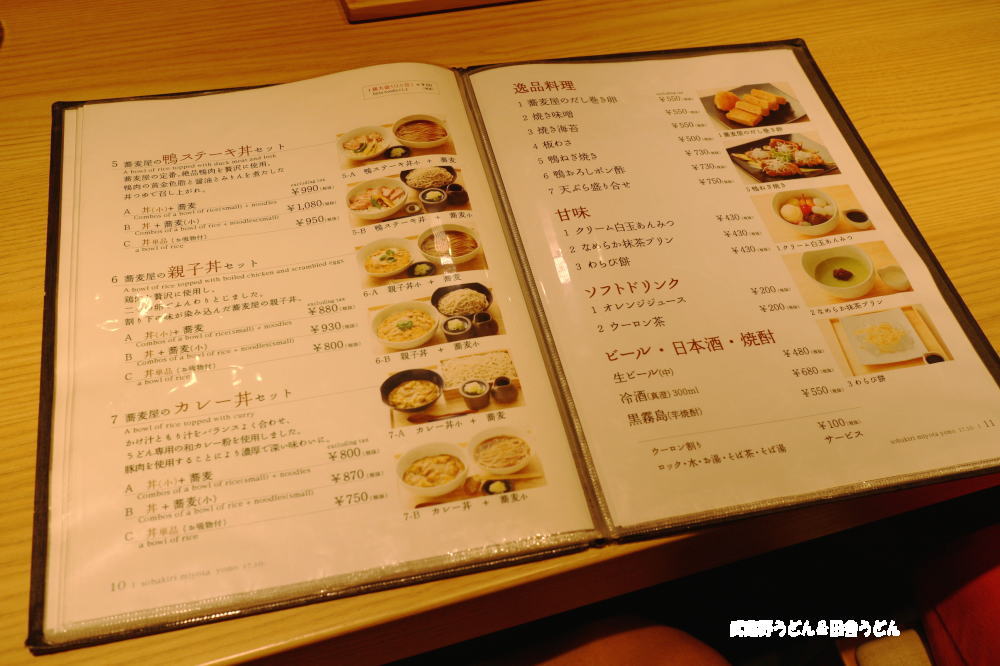 5 蕎麦屋の鴨ステーキ丼セット
A bowl of rice topped with duck meat and leek
蕎麦屋の定番、絶品鴨肉を贅沢に使用。
鴨肉の黄金色脂と醤油とみりんを煮だした
丼つゆで召し上がれ。
excluding tax
A 丼(小)+ 蕎麦 ¥990(税抜)
Combos of a bowl of rice(small) + noodles
B 丼 + 蕎麦(小) ¥1,080(税抜)
Combos of a bowl of rice + noodles(small)
C 丼単品(お吸物付) ¥950(税抜)
a bowl of rice
5-A 鴨ステーキ丼小 + 蕎麦
5-B 鴨ステーキ丼 + 蕎麦小
6 蕎麦屋の親子丼セット
A bowl of rice topped with boiled chicken and scrambled eggs
excluding tax
A 丼(小)+ 蕎麦 ¥880(税抜)
Combos of a bowl of rice(small) + noodles
B 丼 + 蕎麦(小) ¥930(税抜)
Combos of a bowl of rice + noodles(small)
C 丼単品(お吸物付) ¥800(税抜)
a bowl of rice
6-A 親子丼小 + 蕎麦
6-B 親子丼 + 蕎麦小
7 蕎麦屋のカレー丼セット
A bowl of rice topped with curry
かけ汁ともり汁をバランスよく合わせ、
うどん専用の和カレー粉を使用しました。
豚肉を使用することにより濃厚で深い味わいに。
excluding tax
A 丼(小)+ 蕎麦 ¥800(税抜)
Combos of a bowl of rice(small) + noodles
B 丼 + 蕎麦(小) ¥870(税抜)
Combos of a bowl of rice + noodles(small)
C 丼単品(お吸物付) ¥750(税抜)
a bowl of rice
7-A カレー丼小 + 蕎麦
7-B カレー丼 + 蕎麦小
10 | sobakiri miyota yomo 17.10
逸品料理
excluding tax
1 蕎麦屋のだし巻き卵 ¥550(税抜)
2 焼き味噌 ¥550(税抜)
3 焼き海苔 ¥550(税抜)
4 板わさ ¥500(税抜)
5 鴨ねぎ焼き ¥730(税抜)
6 鴨おろしポン酢 ¥730(税抜)
7 天ぷら盛り合せ ¥750(税抜)
1 蕎麦屋のだし巻き卵
5 鴨ねぎ焼き
甘味
1 クリーム白玉あんみつ ¥430(税抜)
2 なめらか抹茶プリン ¥430(税抜)
3 わらび餅 ¥430(税抜)
1 クリーム白玉あんみつ
2 なめらか抹茶プリン
3 わらび餅
ソフトドリンク
1 オレンジジュース ¥200(税抜)
2 ウーロン茶 ¥200(税抜)
ビール・日本酒・焼酎
生ビール(中) ¥480(税抜)
冷酒(真澄)300ml ¥680(税抜)
黒霧島(芋焼酎) ¥550(税抜)
ウーロン割り ¥100(税抜)
ロック・水・お湯・そば茶・そば湯 サービス
sobakiri miyota yomo 17.10 | 11
武蔵野うどん&田舎うどん